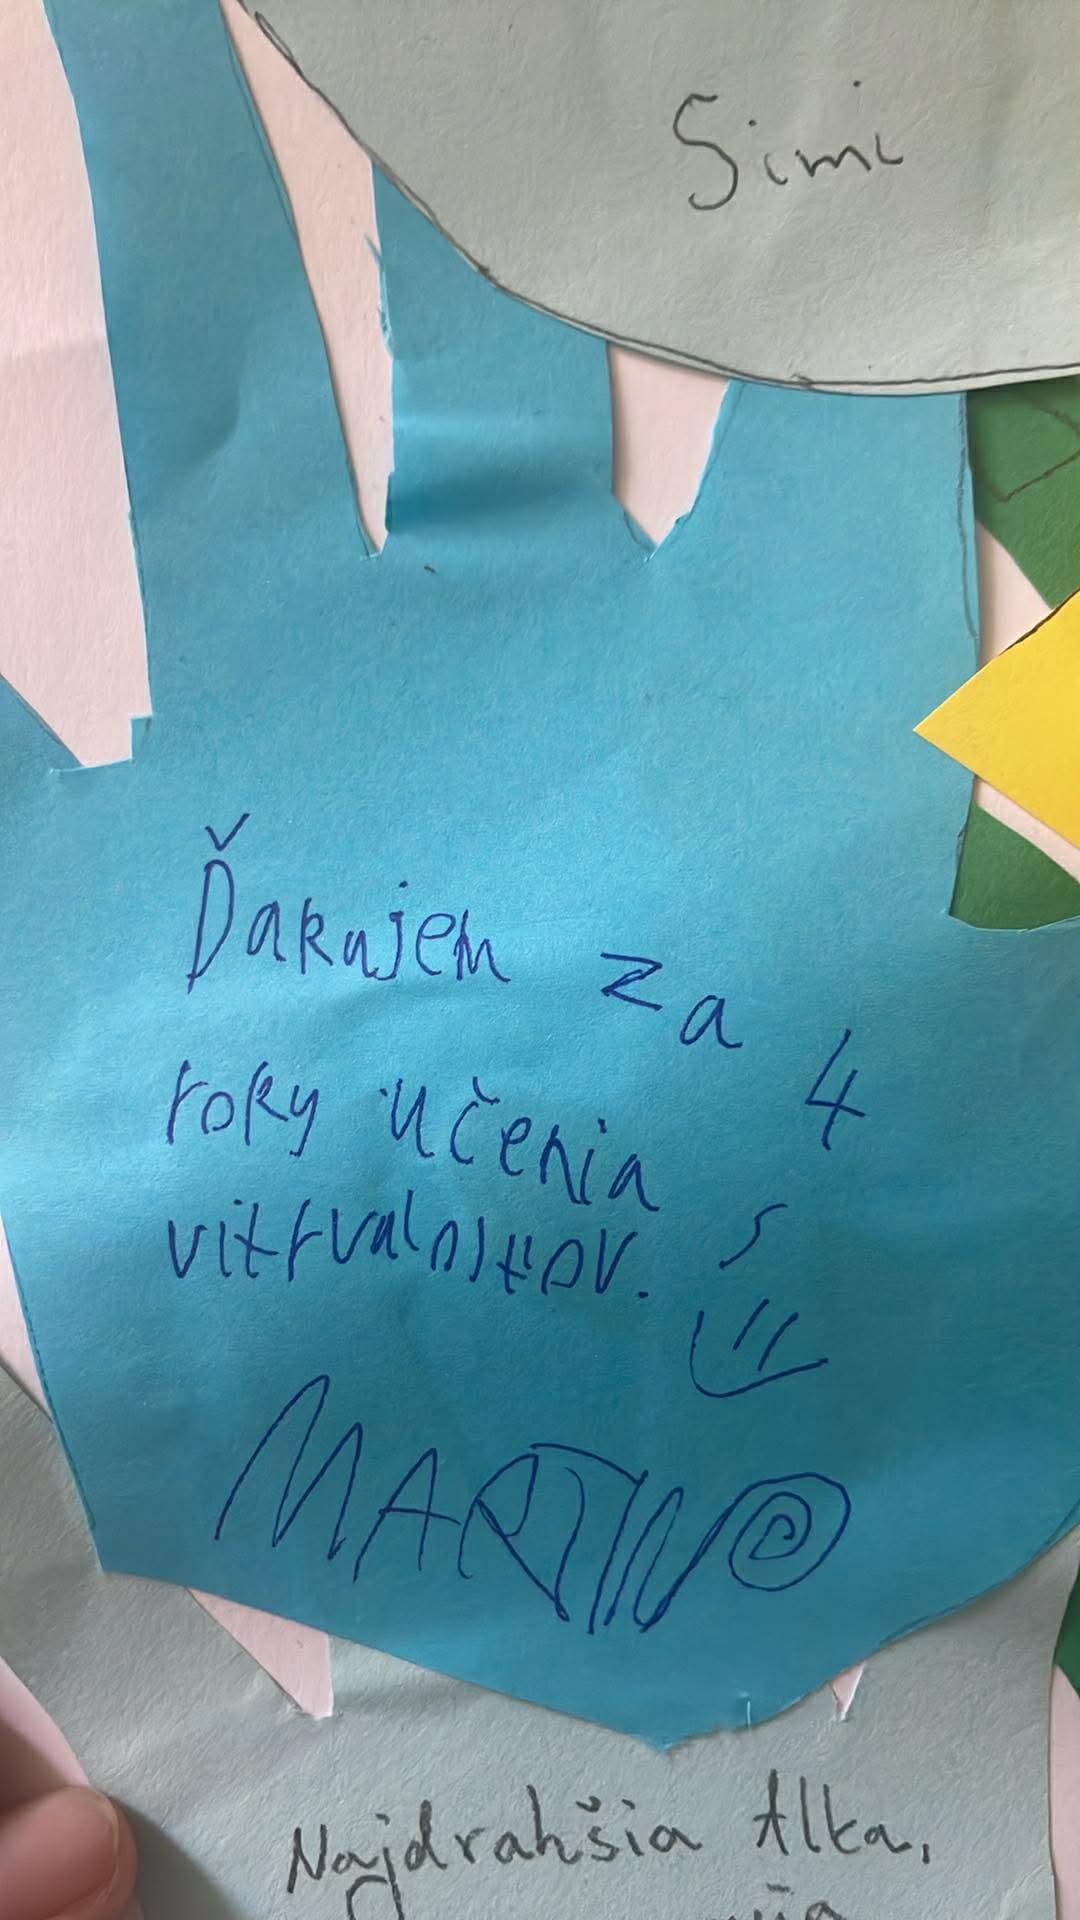 Simi
Ďakujem za 4
roky učenia
MARTIN
Najdrahšia Alka,